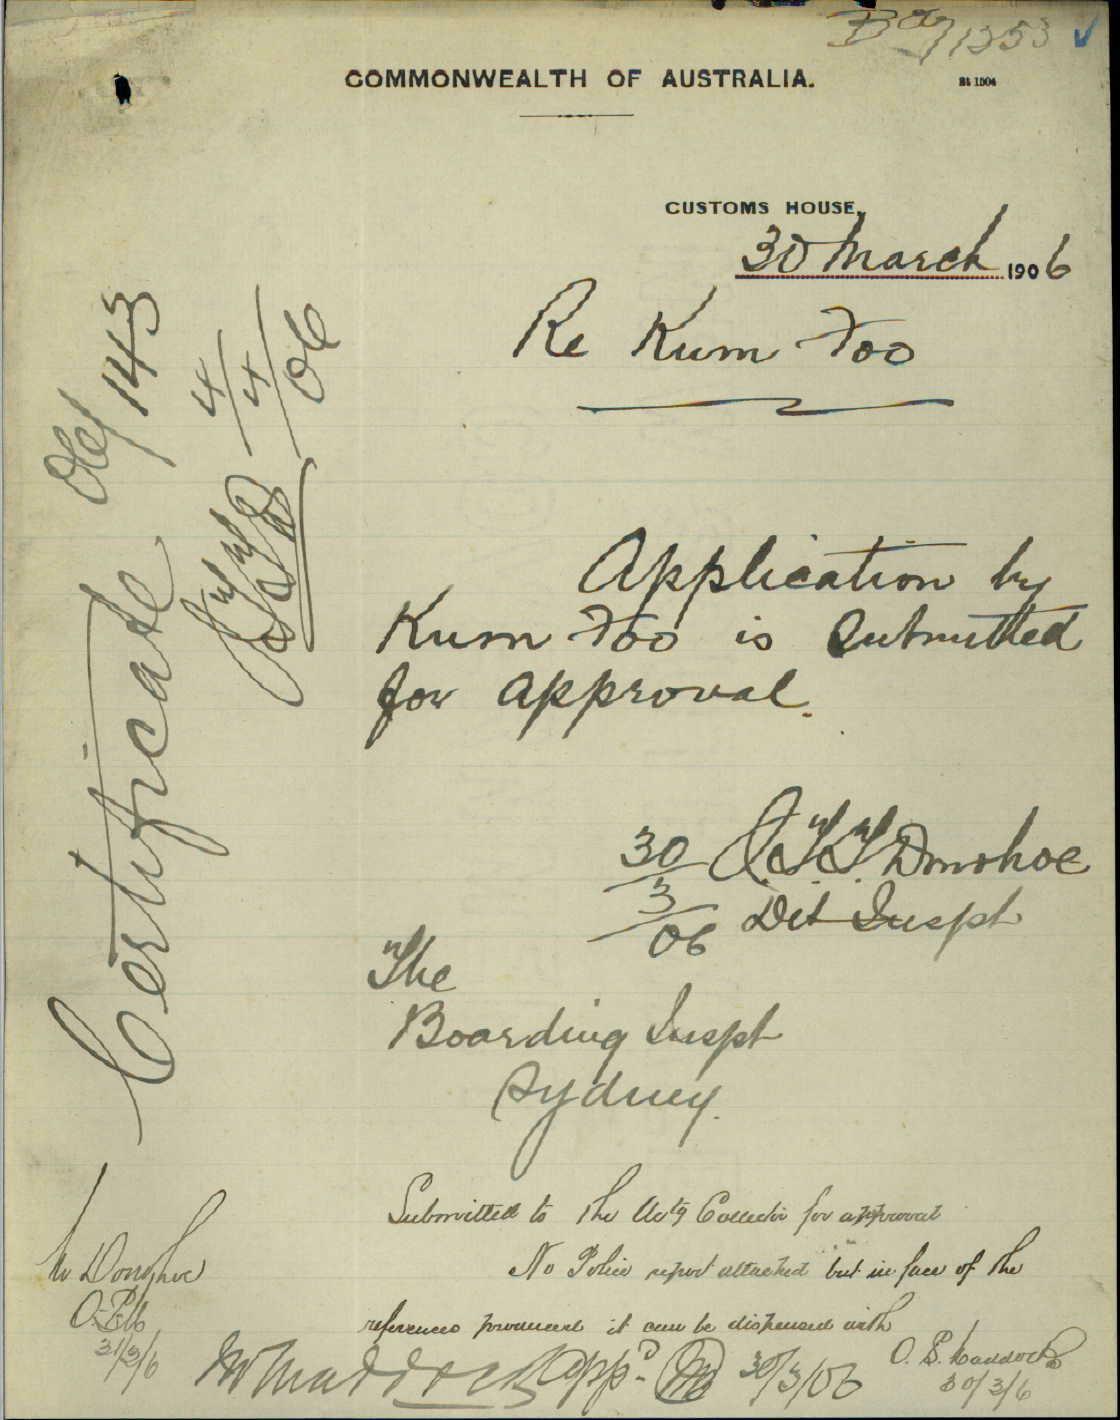 1353
COMMONWEALTH OF AUSTRALIA.
CUSTOMS HOUSE,
30 March 1906
Re Kum Foo
Application by
Kum Foo is Submitted
for approval.
30/3/06 J. T. T. Donohoe
Det Inspt
The
Boarding Inspt
Sydney.
Submitted to the Actg Collector for approval
No Police report attached but in face of the
references produced it can be dispensed with
O. E. Maddocks
30/3/6
Appd 30/3/06
Mr Donohoe
31/3/6
Certificate 06/143
4/4/06